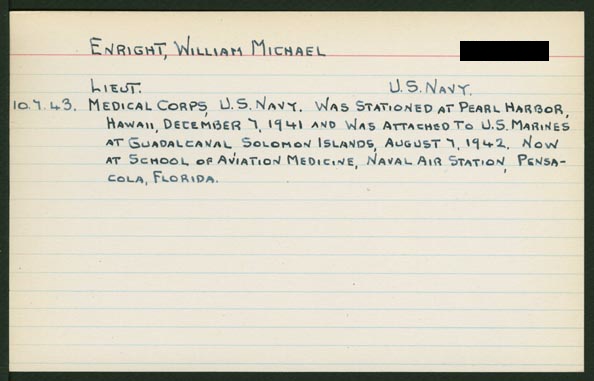 ENRIGHT, WILLIAM MICHAEL
LIEUT. U.S. NAVY.
10.7.43. MEDICAL CORPS, U.S. NAVY. WAS STATIONED AT PEARL HARBOR,
HAWAII, DECEMBER 7, 1941 AND WAS ATTACHED TO U.S. MARINES
AT GUADALCANAL SOLOMON ISLANDS, AUGUST 7, 1942. NOW
AT SCHOOL OF AVIATION MEDICINE, NAVAL AIR STATION, PENSA-
COLA, FLORIDA.